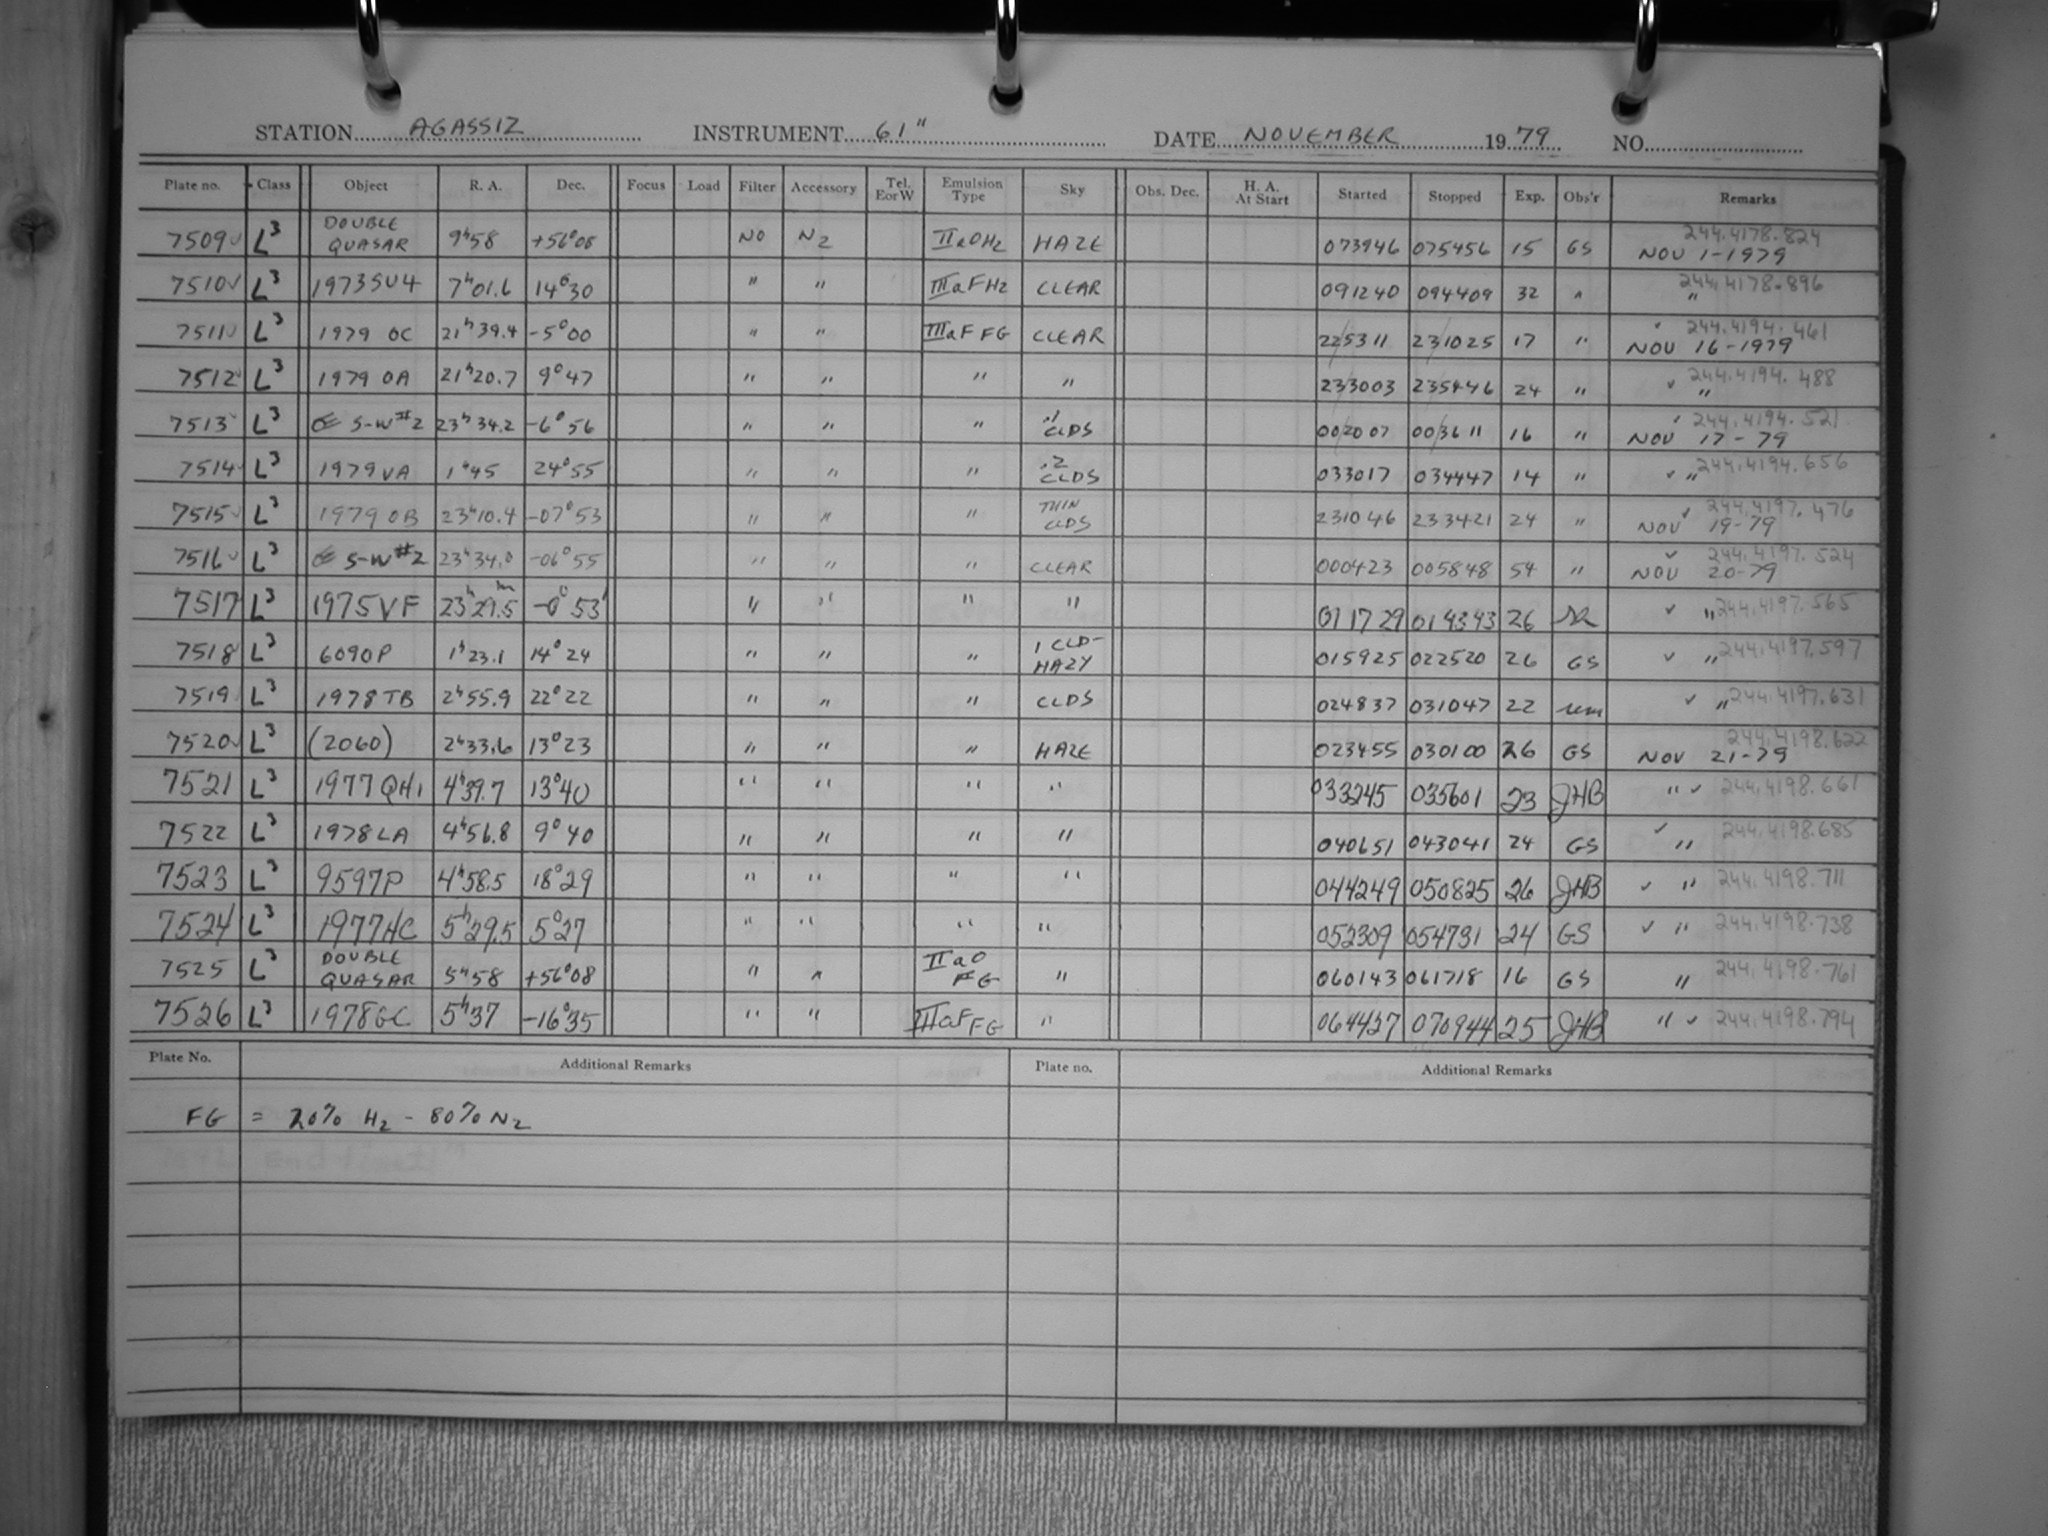 STATION AGASSIZ INSTRUMENT 61" DATE NOVEMBER 1979 NO.
Plate no. Class Object R. A. Dec. Focus Load Filter Accessory Tel. E or W Emulsion Type Sky Obs. Dec. H. A. At Start Started Stopped Exp. Obs'r Remarks
7509 L3 DOUBLE QUASAR 9h58 +56°08 NO N2 IIaOH2 HAZE 073946 075456 15 GS 244.4178.824 NOV 1-1979
7510 L3 1973SU4 7h01.6 14°30 " " IIIaFH2 CLEAR 091240 094409 32 " 244.4178.896 "
7511 L3 1979 OC 21h39.4 -5°00 " " IIIaF FG CLEAR 225311 231025 17 " 244.4194.461 NOV 16-1979
7512 L3 1979 OA 21h20.7 9°47 " " " " 233003 235446 24 " ✓ 244.4194.488 "
7513 L3 S-W#2 23h34.2 -6°56 " " " .1 CLDS 002007 003611 16 " 244.4194.521 NOV 17-79
7514 L3 1979VA 1h45 24°55 " " " .2 CLDS 033017 034447 14 " ✓ " 244.4194.656
7515 L3 1979 OB 23h10.4 -07°53 " " " THIN CLDS 231046 233421 24 " ✓ 244.4197.476 NOV 19-79
7516 L3 S-W#2 23h34.0 -06°55 " " " CLEAR 000423 005848 54 " ✓ 244.4197.524 NOV 20-79
7517 L3 1975VF 23h29.5m -0°53' " " " " 011729 014343 26 ✓ " 244.4197.565
7518 L3 6090P 1h23.1 14°24 " " " 1 CLD-HAZY 015925 022520 26 GS ✓ " 244.4197.597
7519 L3 1978TB 2h55.9 22°22 " " " CLDS 024837 031047 22 ✓ " 244.4197.631
7520 L3 (2060) 2h33.6 13°23 " " " HAZE 023455 030100 26 GS 244.4198.622 NOV 21-79
7521 L3 1977QH1 4h39.7 13°40 " " " " 033245 035601 23 JHB " ✓ 244.4198.661
7522 L3 1978LA 4h56.8 9°40 " " " " 040651 043041 24 GS ✓ " 244.4198.685
7523 L3 9597P 4h58.5 18°29 " " " " 044249 050825 26 JHB ✓ " 244.4198.711
7524 L3 1977HC 5h29.5 5°27 " " " " 052309 054731 24 GS ✓ " 244.4198.738
7525 L3 DOUBLE QUASAR 5h58 +56°08 " " IIaO FG " 060143 061718 16 GS " 244.4198.761
7526 L3 1978GC 5h37 -16°35 " " IIIaF FG " 064427 070944 25 JHB " ✓ 244.4198.794
Plate No. Additional Remarks Plate no. Additional Remarks
FG = 20% H2 - 80% N2